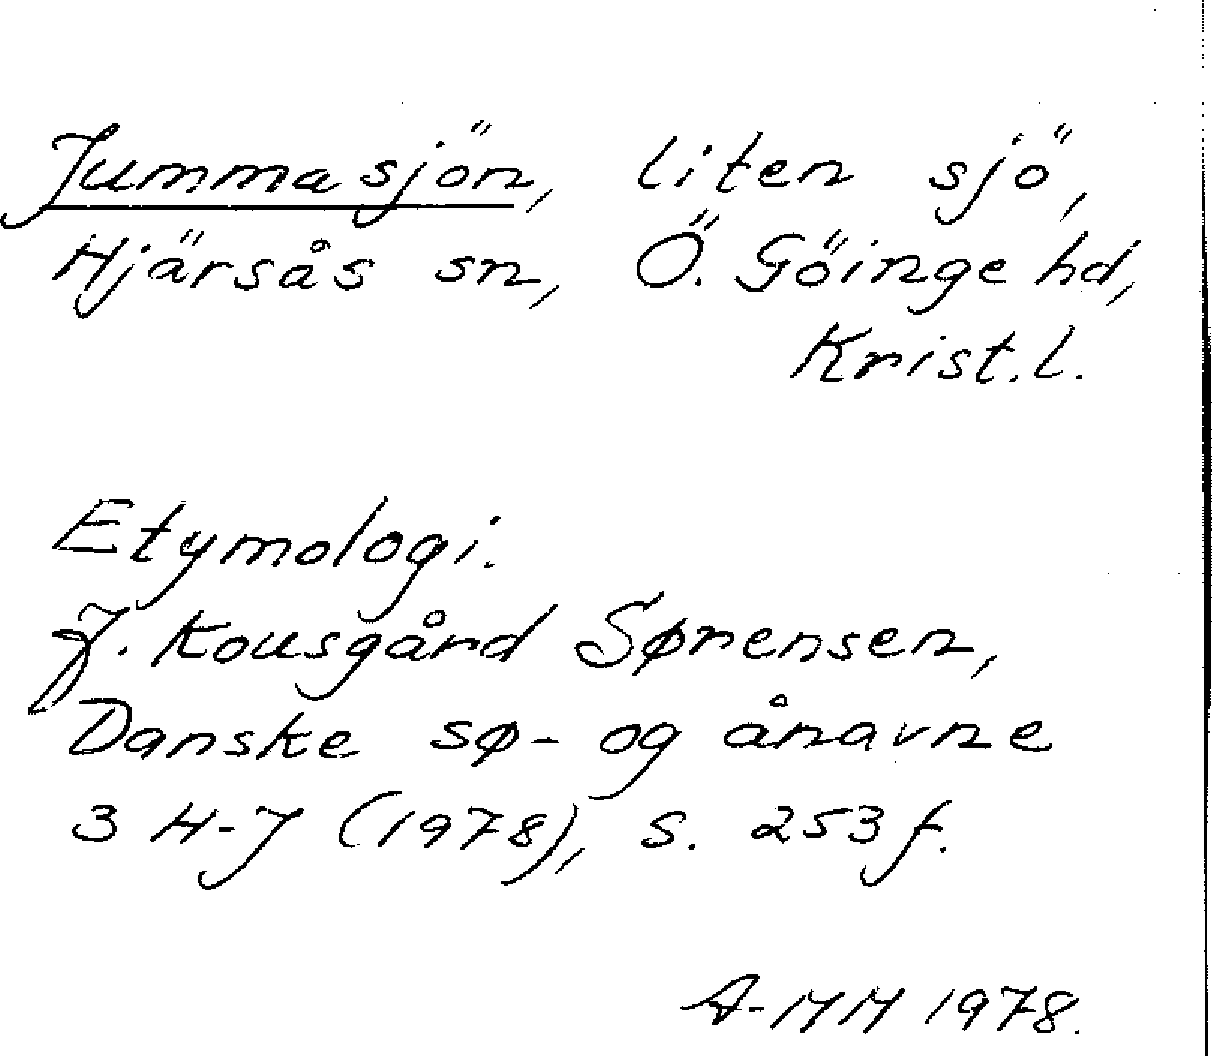 Jummasjön, liten sjö,
Hjärsås sn, Ö. Göinge hd,
Krist.l.
Etymologi.
J. Kousgård Sørensen,
Danske sø- og ånavne
3 H-J (1978), S. 253 f.
A-MM 1978.